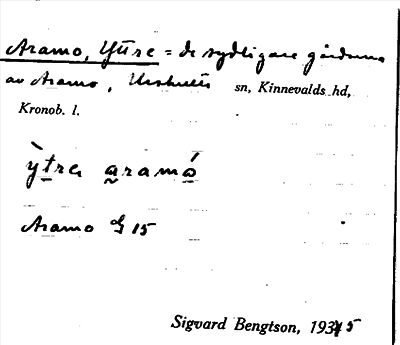 Aramo, Yttre = de sydligare gårdarna
av Aramo, Urshults sn, Kinnevalds hd,
Kronob. l.
ỳtre aramó
Aramo JG 15
Sigvard Bengtson, 1935